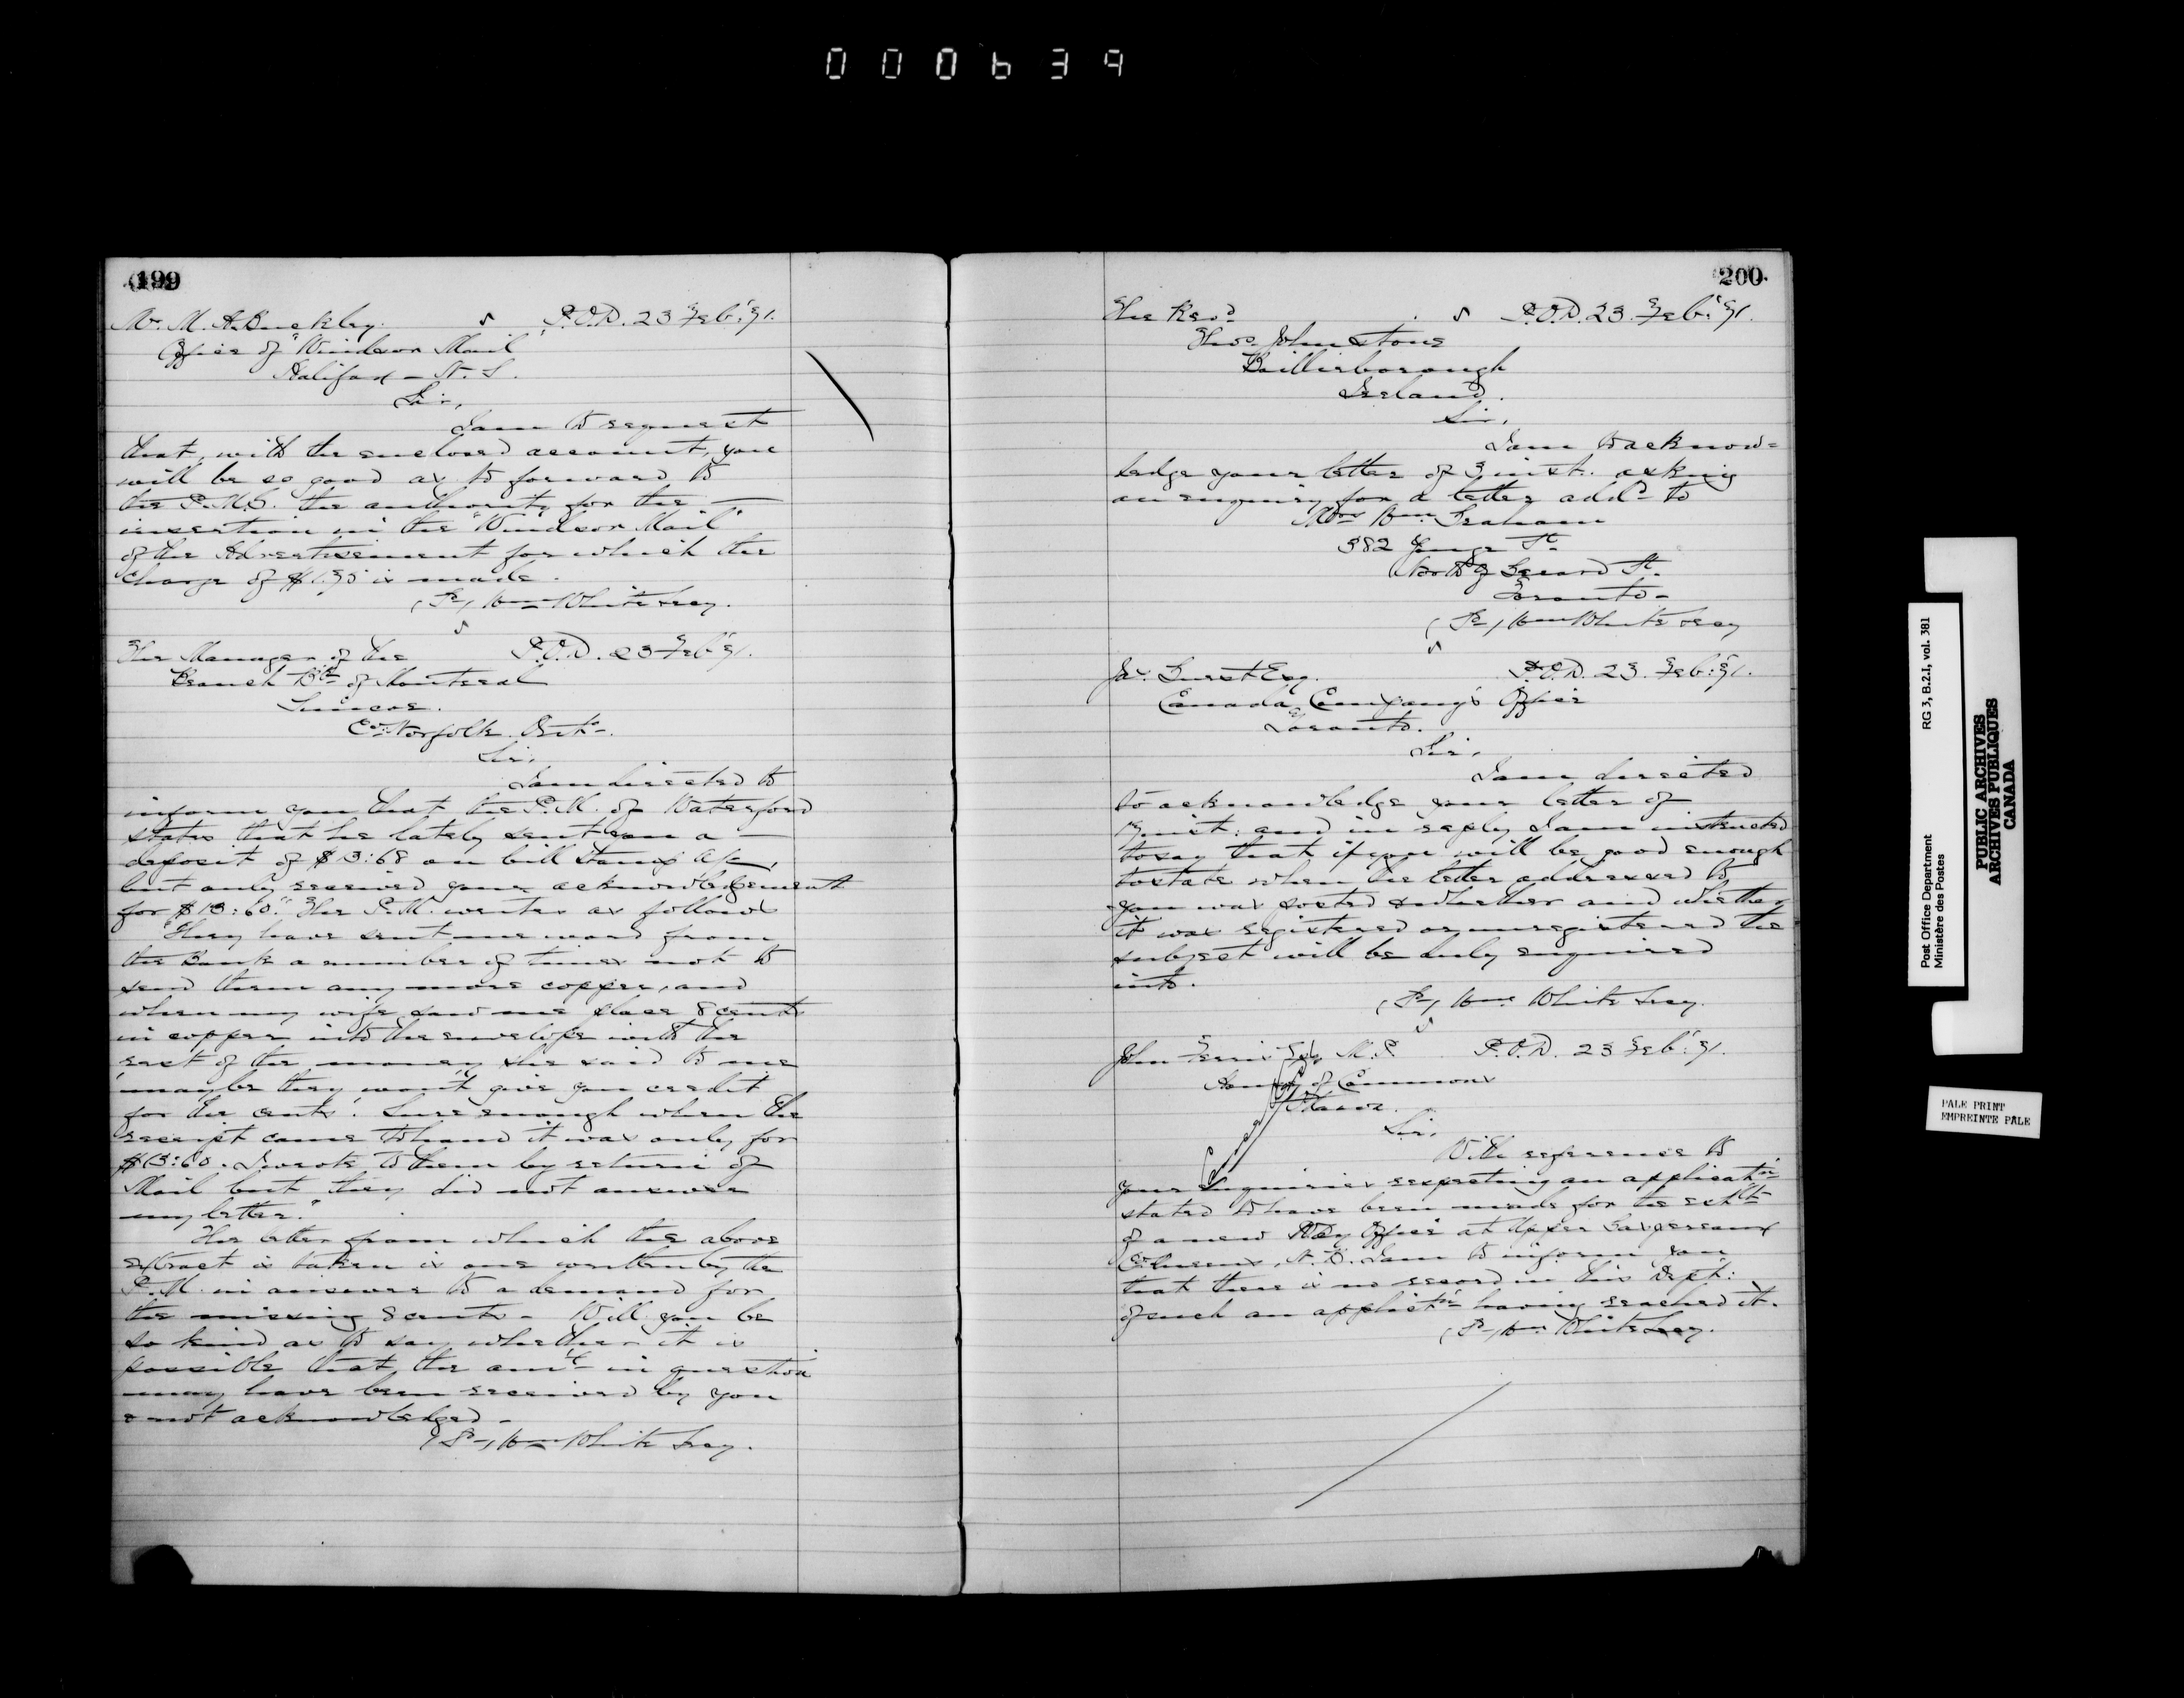 000639
199
Mr. M. A. Buckley. P.O.D. 23 Feb: '71.
Office of "Windsor Mail"
Halifax - N. S.
Sir,
I am to request
that, with the enclosed account, you
will be so good as to forward to
the P.M.G. the authority for the
insertion in the "Windsor Mail"
of the Advertisement for which the
charge of is made.
(Sd) Wm White Secy.
The Manager of the P.O.D. 23 Feb '71.
Branch Bk of Montreal
Simcoe.
Co. Norfolk. Onto.
Sir,
I am directed to
inform you that the P.M. of Waterford
states that he lately sent you a
deposit of $13:68 on bill Stamp a/c,
but only received your acknowledgement
for $13:60. The P.M. writes as follows
"They have sent me word from
the Bank a number of times not to
send them any more copper, and
when my wife saw me place 8 cents
in copper into the envelope with the
rest of the money she said to me
'maybe they won't give you credit
for the cents'. Sure enough when the
receipt came to hand it was only for
$13:60. I wrote to them by return of
Mail but they did not answer
my letter."
The letter from which the above
extract is taken is one written by the
P.M. in answer to a demand for
the missing 8 cents - Will you be
so kind as to say whether it is
possible that the amt in question
may have been received by you
& not acknowledged -
(Sd) Wm White Secy.
200
The Revd P.O.D. 23. Feb: '71.
Thos. Johnstone
Bailieborough
Ireland.
Sir,
I am to acknow=
ledge your letter of 3 inst. asking
an enquiry for a letter addd to
Wm. Graham
382 Yonge St
North of Gerard St.
Toronto -
(Sd) Wm White Secy
Jas. Esq. P.O.D. 23. Feb: '71.
Canada Company's Office
Toronto.
Sir,
I am directed
to acknowledge your letter of
inst: and in reply I am instructed
to say that if you will be good enough
to state when the letter addressed to
you was posted & whether and whether
it was registered or unregistered the
subject will be duly enquired
into.
(Sd) Wm White Secy.
John Ferris Esq. M.P. P.O.D. 23 Feb: '71.
House of Commons
Ottawa.
Sir,
With reference to
your inquiries respecting an applicatn
stated to have been made for the estt
of a new Way Office at Upper Gaspereaux
Queens, N.B. I am to inform you
that there is no record in this Dept:
of such an applictn having reached it.
(Sd) Wm White Secy.
Post Office Department RG 3, B.2.1, vol. 381
Ministère des Postes
PUBLIC ARCHIVES
ARCHIVES PUBLIQUES
CANADA
PALE PRINT
EMPREINTE PÂLE